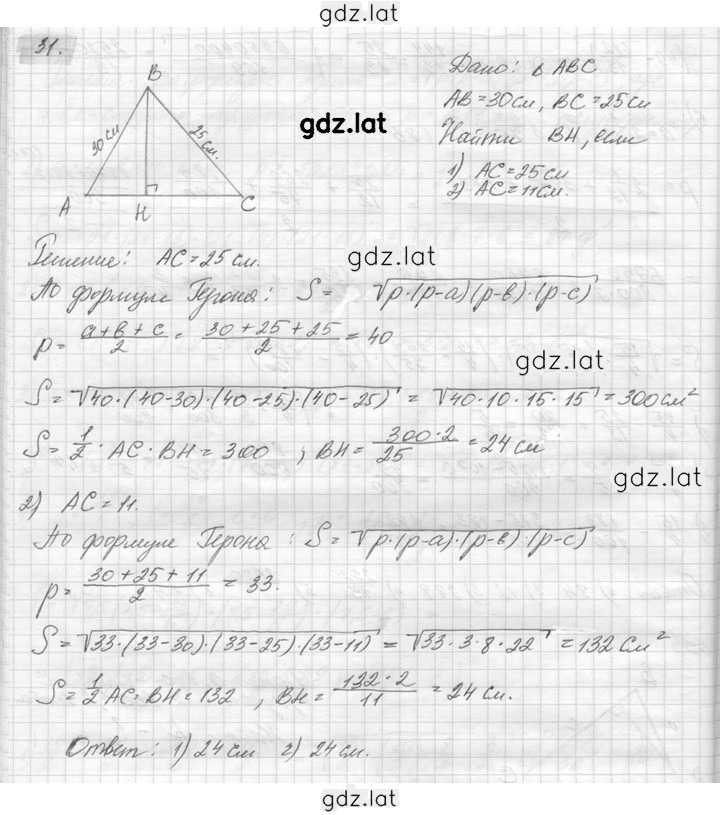 gdz.lat
31.
B
30 см
25 см.
A
H
C
gdz.lat
Дано: Δ ABC
AB = 30 см, BC = 25 см
Найти BH, если
1) AC = 25 см
2) AC = 11 см.
Решение: AC = 25 см.
gdz.lat
По формуле Герона: S = √p·(p-a)(p-в)·(p-c)
p = (a+в+c)/2 = (30+25+25)/2 = 40
gdz.lat
S = √40·(40-30)·(40-25)·(40-25) = √40·10·15·15 = 300 см²
S = 1/2 · AC · BH = 300 ; BH = (300·2)/25 = 24 см
gdz.lat
2) AC = 11.
По формуле Герона: S = √p·(p-a)·(p-в)·(p-c)
gdz.lat
p = (30+25+11)/2 = 33.
S = √33·(33-30)·(33-25)·(33-11) = √33·3·8·22 = 132 см²
S = 1/2 AC·BH = 132 , BH = (132·2)/11 = 24 см.
Ответ: 1) 24 см 2) 24 см.
gdz.lat